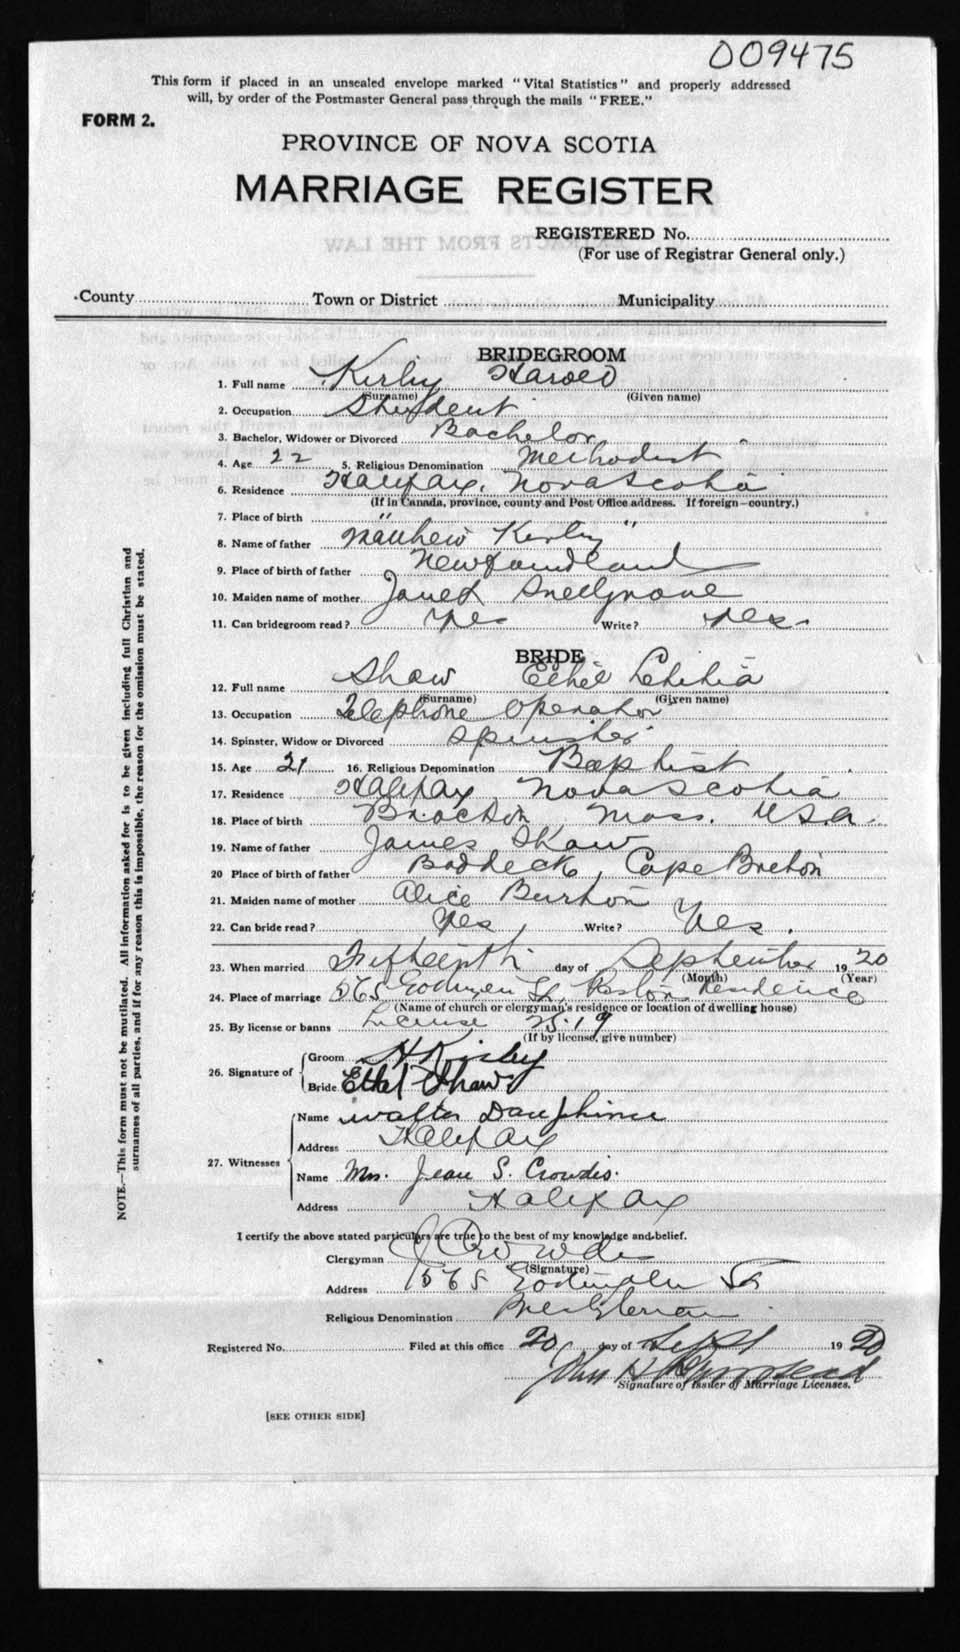 009475
This form if placed in an unsealed envelope marked "Vital Statistics" and properly addressed
will, by order of the Postmaster General pass through the mails "FREE."
FORM 2.
PROVINCE OF NOVA SCOTIA
MARRIAGE REGISTER
REGISTERED No.
(For use of Registrar General only.)
County Town or District Municipality
BRIDEGROOM
1. Full name Kirby Harold
(Surname) (Given name)
2. Occupation Student
3. Bachelor, Widower or Divorced Bachelor
4. Age 22 5. Religious Denomination Methodist
6. Residence Halifax, Nova Scotia
(If in Canada, province, county and Post Office address. If foreign—country.)
7. Place of birth " "
8. Name of father Matthew Kirby
9. Place of birth of father Newfoundland
10. Maiden name of mother Janet Snellgrove
11. Can bridegroom read? Yes Write? Yes.
BRIDE
12. Full name Shaw Ethel Letitia
(Surname) (Given name)
13. Occupation Telephone Operator
14. Spinster, Widow or Divorced Spinster
15. Age 21 16. Religious Denomination Baptist
17. Residence Halifax Nova Scotia
18. Place of birth Brocton Mass. U.S.A.
19. Name of father James Shaw
20 Place of birth of father Baddeck, Cape Breton
21. Maiden name of mother Alice Burton
22. Can bride read? Yes Write? Yes.
23. When married Fifteenth day of September 1920
(Month) (Year)
24. Place of marriage St, Residence
(Name of church or clergyman's residence or location of dwelling house)
25. By license or banns License 2519
(If by license, give number)
26. Signature of Groom H Kirby
Bride Ethel Shaw
27. Witnesses Name Walter Dauphinee
Address Halifax
Name Mrs. Jean S. Crowdis.
Address Halifax
I certify the above stated particulars are true to the best of my knowledge and belief.
Clergyman J Crowdis
(Signature)
Address St
Religious Denomination Presbyterian
Registered No. Filed at this office 20 day of Sept 1920
John H
Signature of Issuer of Marriage Licenses.
[SEE OTHER SIDE]
NOTE.—This form must not be mutilated. All information asked for is to be given including full Christian and
surnames of all parties, and if for any reason this is impossible, the reason for the omission must be stated.